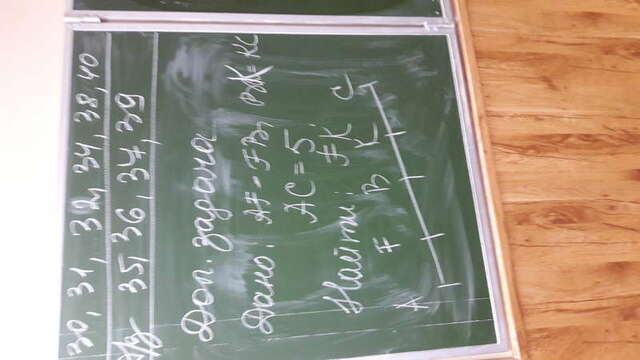 30, 31, 32, 34, 38, 40
Дз 35, 36, 37, 39
Доп. задача
Дано: AF = FB, BK = KC
AC = 5
Найти: FK
A F B K C